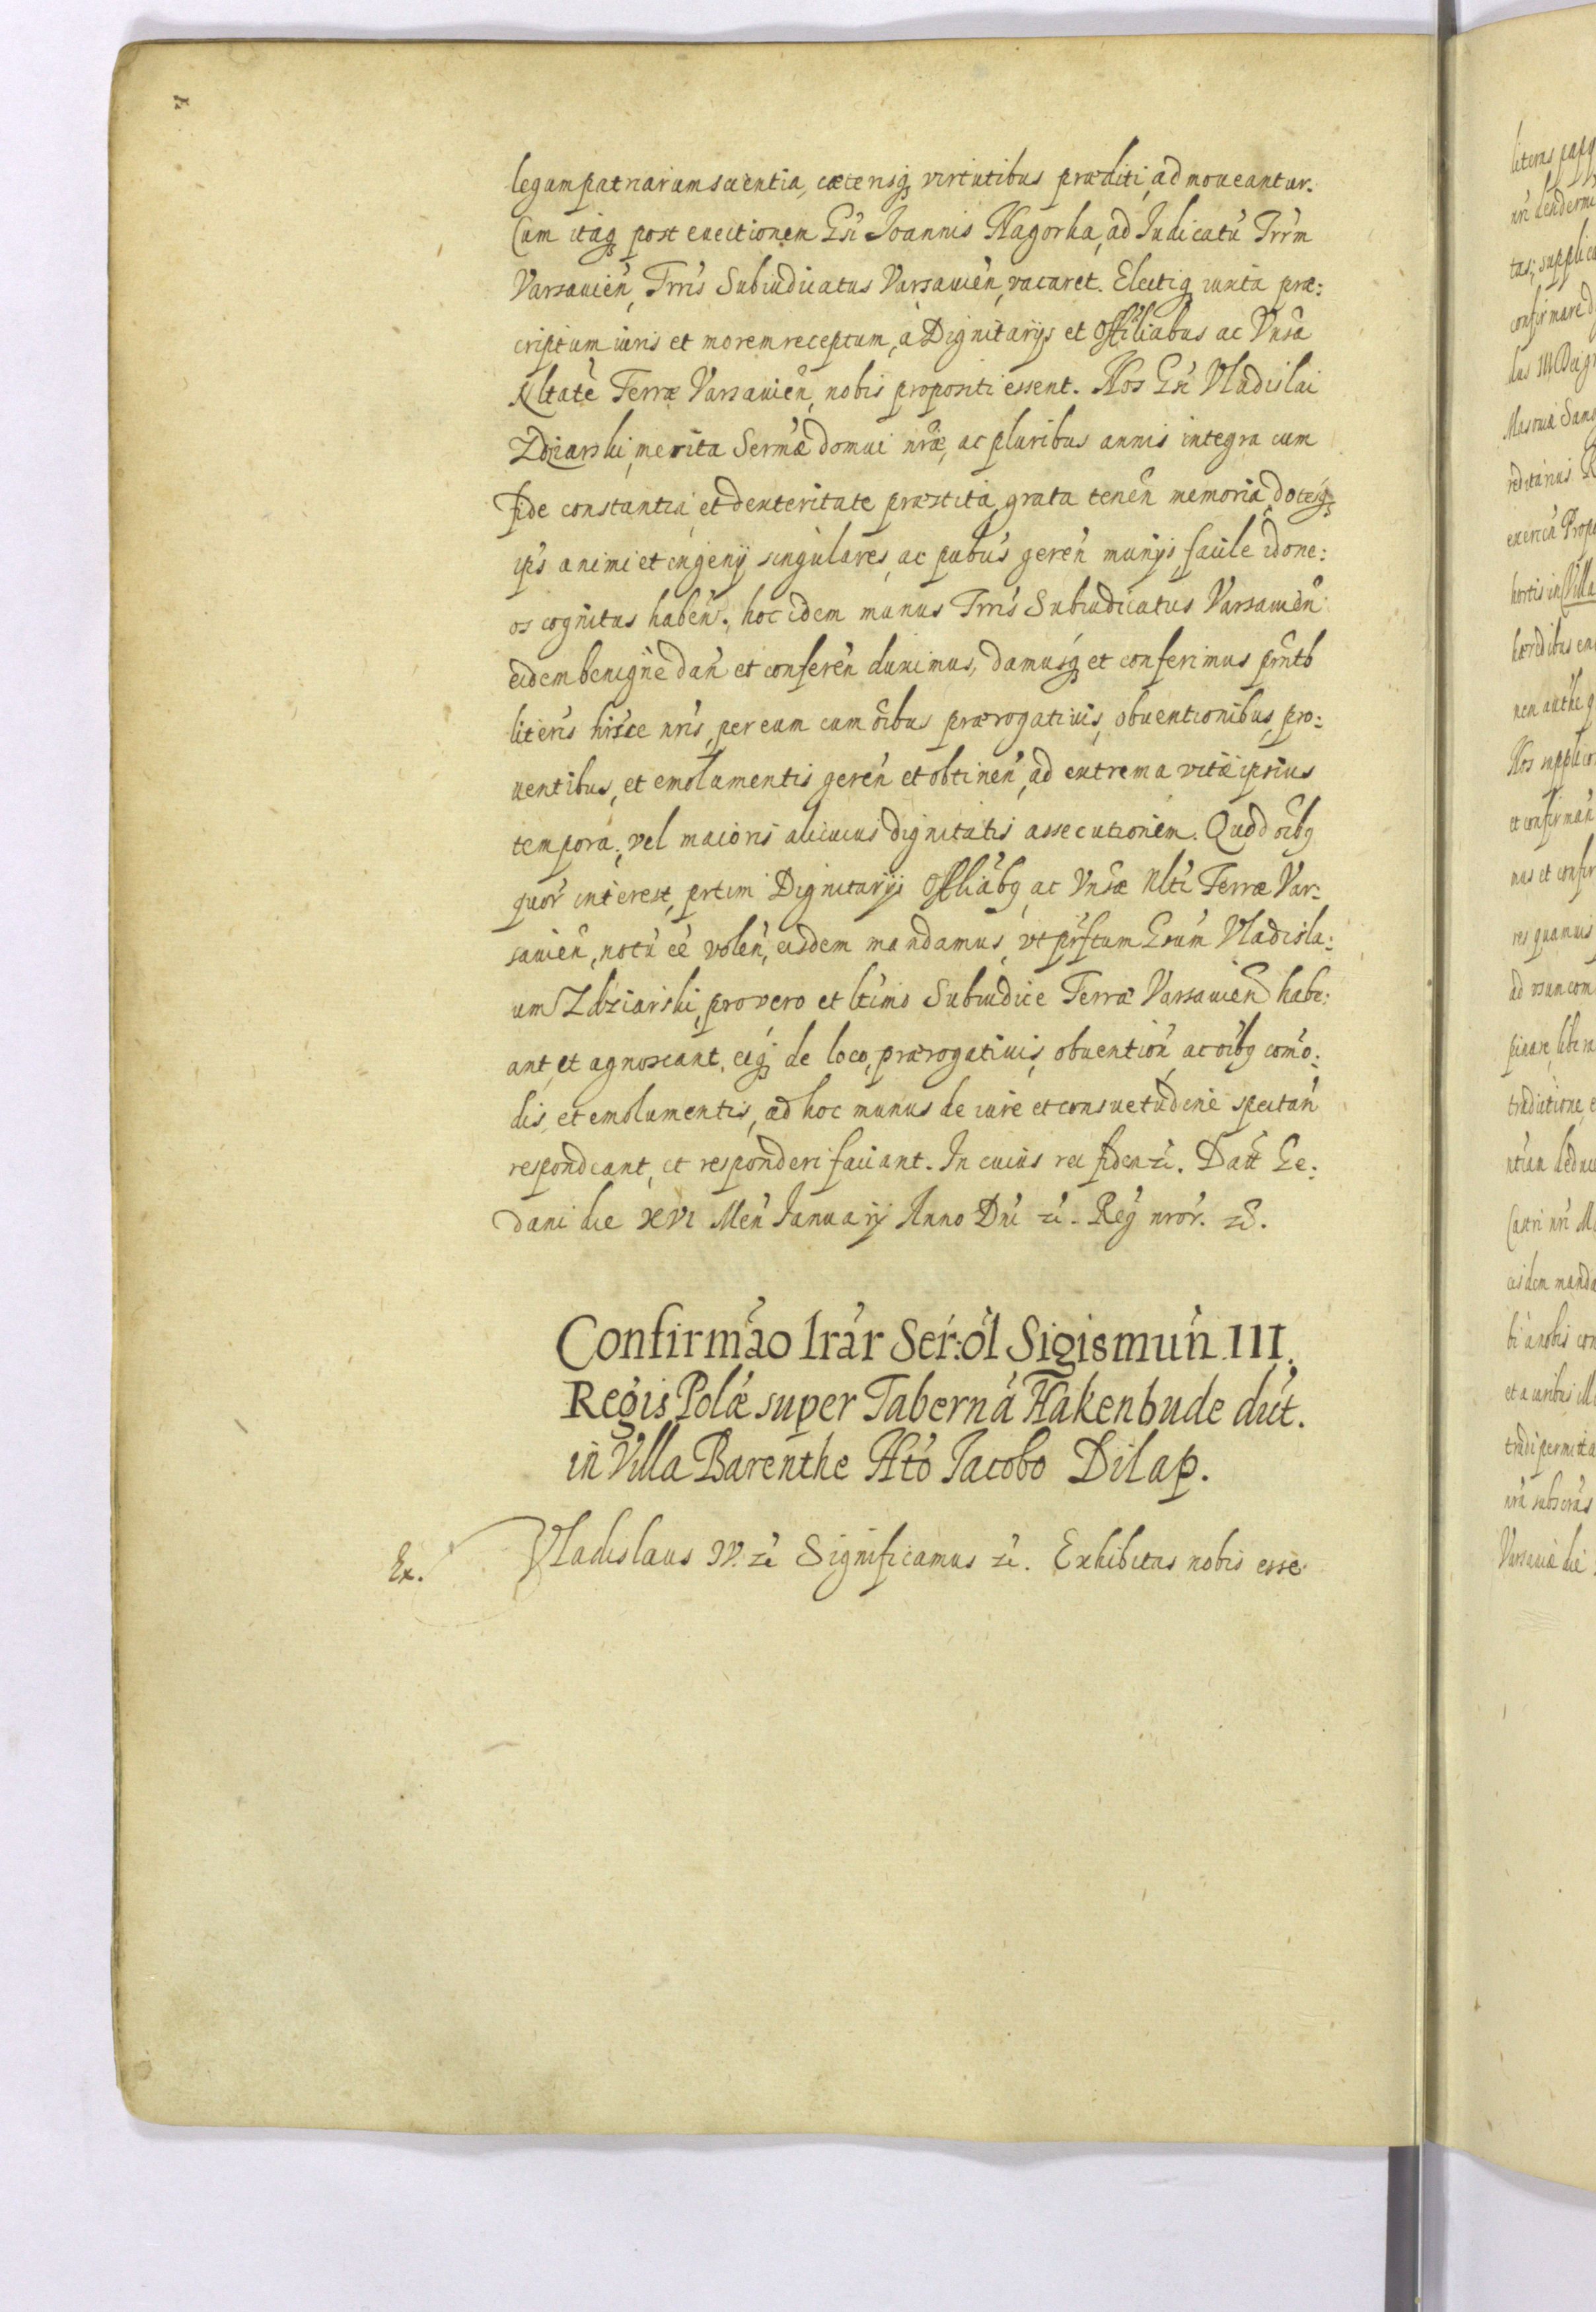 legum patriarum scientia, cæterisq; virtutibus præditi, admoveantur.
Cum itaq; post evectionem Gsi Joannis Nagorka, ad Iudicatū Trr'm
Varsavien̄, Trris Subiudicatus Varsavien̄, vacaret. Electiq; iuxta præ:
criptum iuris et morem receptum, à Dignitarijs et Officiliabus ac Vnŝa
Nltate Terræ Varsavien̄, nobis propositi essent. Nos Gsi Vladislai
Zdziarski, merita Sermæ domui nr̄æ, ac pluribus annis integra cum
fide constantia, et dexteritate præstita, grata tenen̄ memoria, dotesq;
ips animi et ingenij singulares, ac pubus geren̄ munijs, facile idone:
os cognitus haben̄. hoc idem munus Trris Subiudicatus Varsavien̄
eidem benigne dan̄ et conferen̄ duximus, damusq; et conferimus pr̄ntb
literis hisce nris, per eum cum oîbus prærogativis, obventionibus, pro:
uentibus, et emolumentis geren̄ et obtinen̄, ad extrema vitæ ipsius
tempora, vel maioris alicuius dignitatis assecutionem. Quod oîbq
quor interest, prtim Dignitarijs Offliabq ac Vnŝæ Nlti Terræ Var:
savien̄, notū eē volen̄, eisdem mandamus, vt prfctum Gsum Vladisla:
um Zdziarski, pro vero et ltimo Subiudice Terræ Varsavien̄ habe:
ant, et agnoscant, eiq; de loco, prærogativis, obvention̄, ac oîbq com̄o:
dis, et emolumentis, ad hoc munus de iure et consuetudine spectan̄
respondeant, et responderi faciant. In cuius rei fidem zc. Datt Ge:
dani die XVI Men̄ Ianuarij Anno Dni zc. Reg nror. zc.
Confirmâo lrar Ser:ol Sigismun̄ III.
Regis Polæ super Tabernā Hakenbude dict.
in Villa Barenthe Hto Iacobo Dilap.
Ex. Vladislaus IV. zc Significamus zc. Exhibitas nobis esse